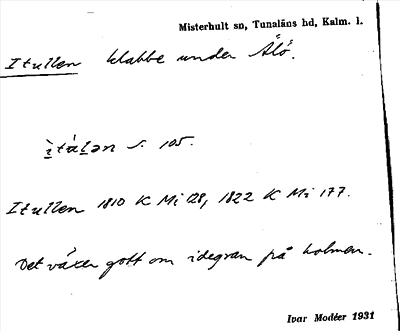 Misterhult sn, Tunaläns hd, Kalm. l.
Itullen klabbe under Älö.
s. 105.
Itullen 1810 K Mi 128, 1822 K Mi 177.
Det växer gott om idegran på holmen.
Ivar Modéer 1931